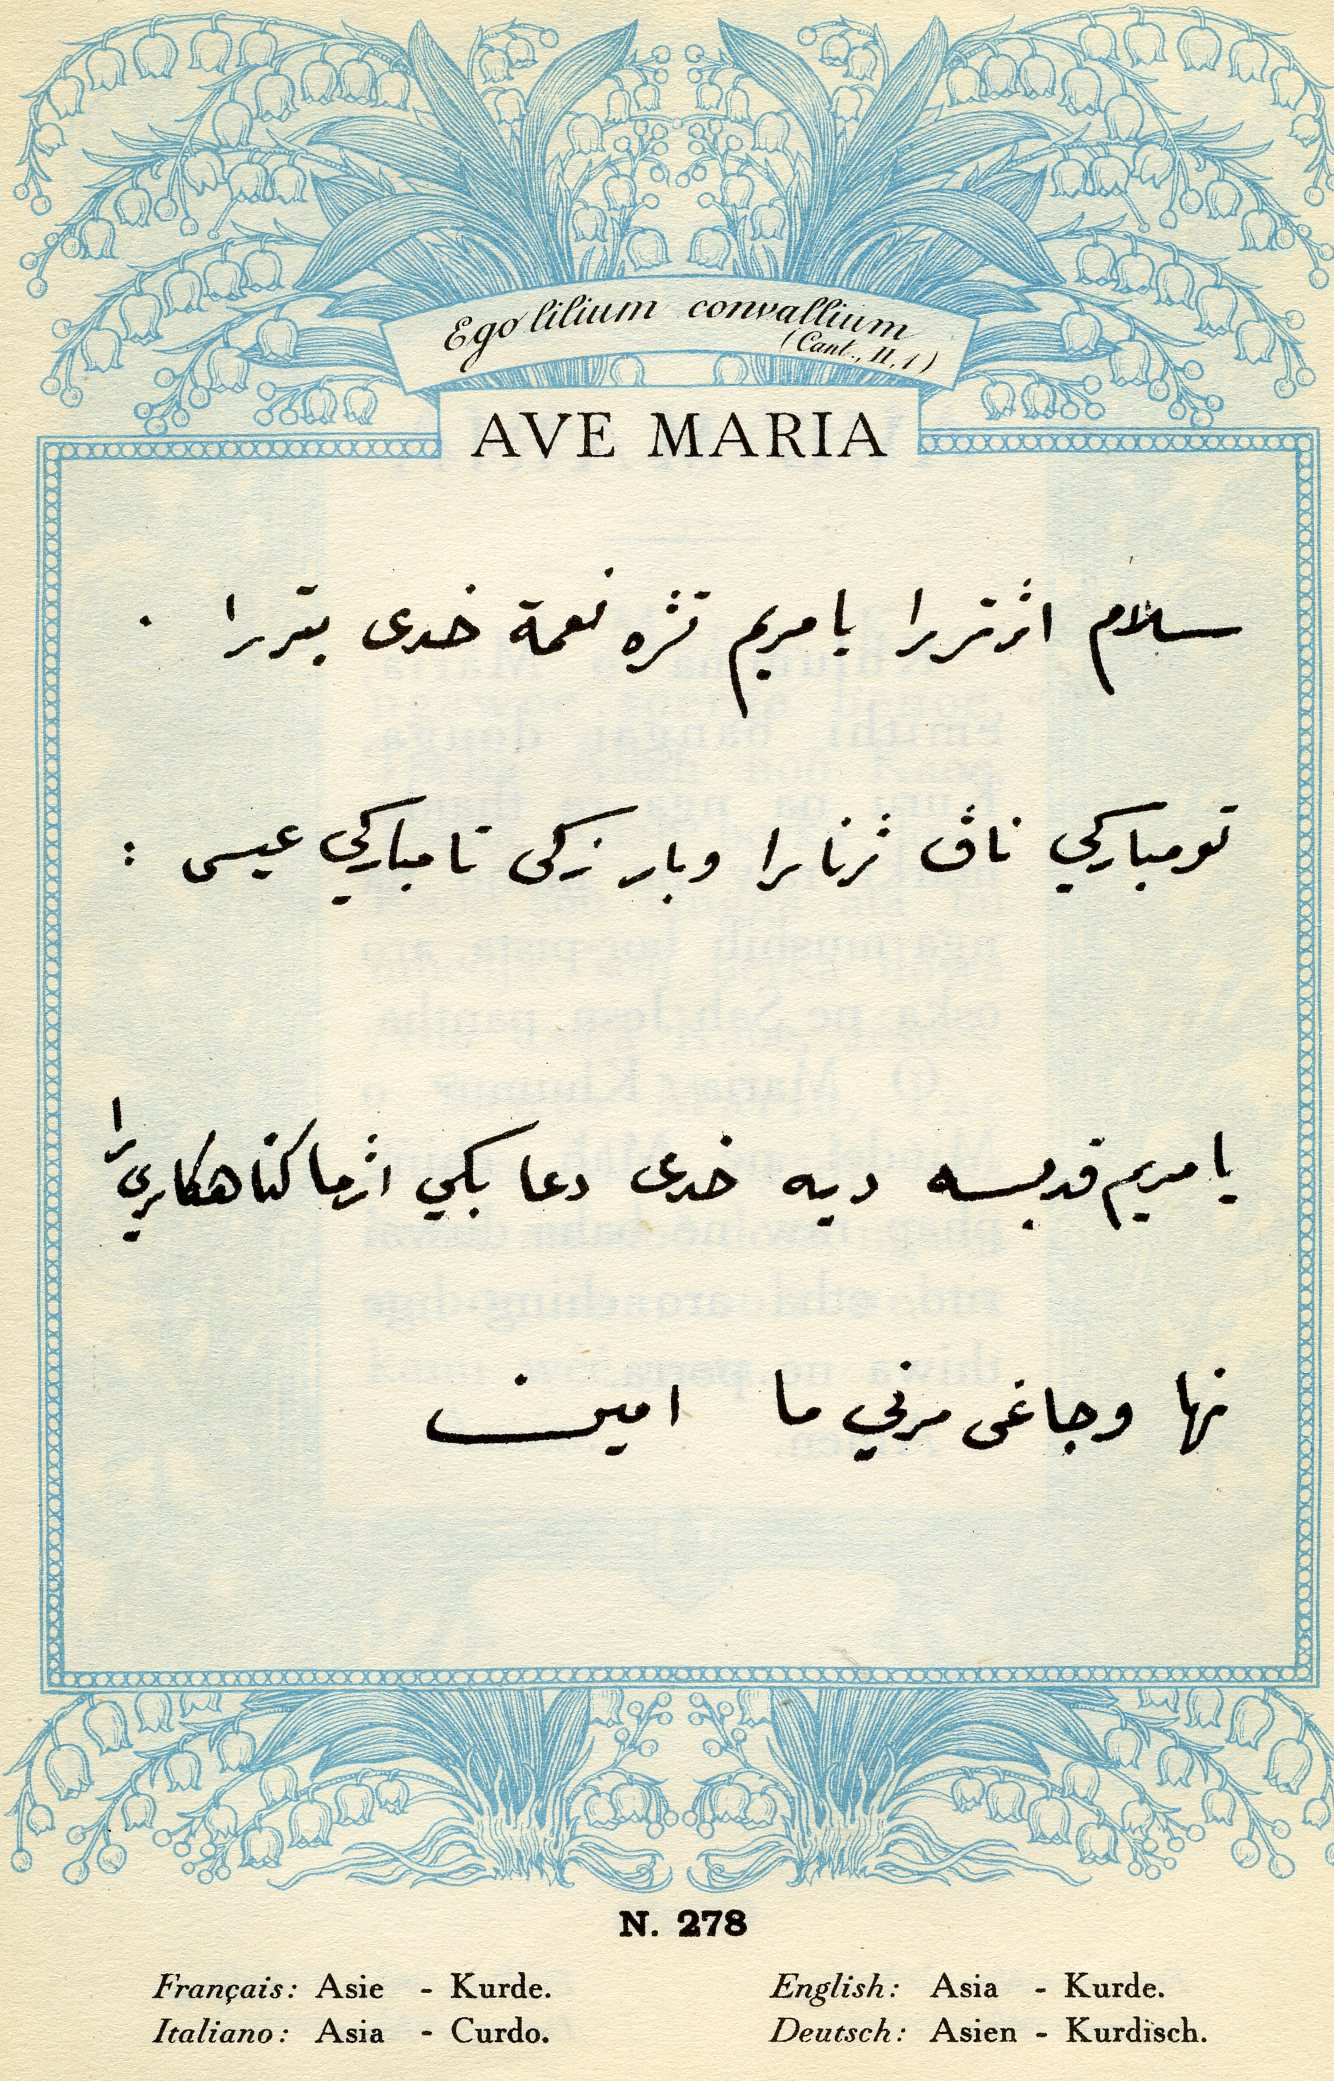 Ego lilium convallium
(Cant., II, 1)
AVE MARIA
سلام اژتررا يا مريم تژه نعمة خدى بتررا .
تو مباركي ناڤ ژنا را وبار زكى تا مباركي عيسى :
يا مريم قديسه ديه خدى دعا بكي اژما كناهكاري را
نها وجاغى مرني ما امين
N. 278
Français: Asie - Kurde.
Italiano: Asia - Curdo.
English: Asia - Kurde.
Deutsch: Asien - Kurdisch.